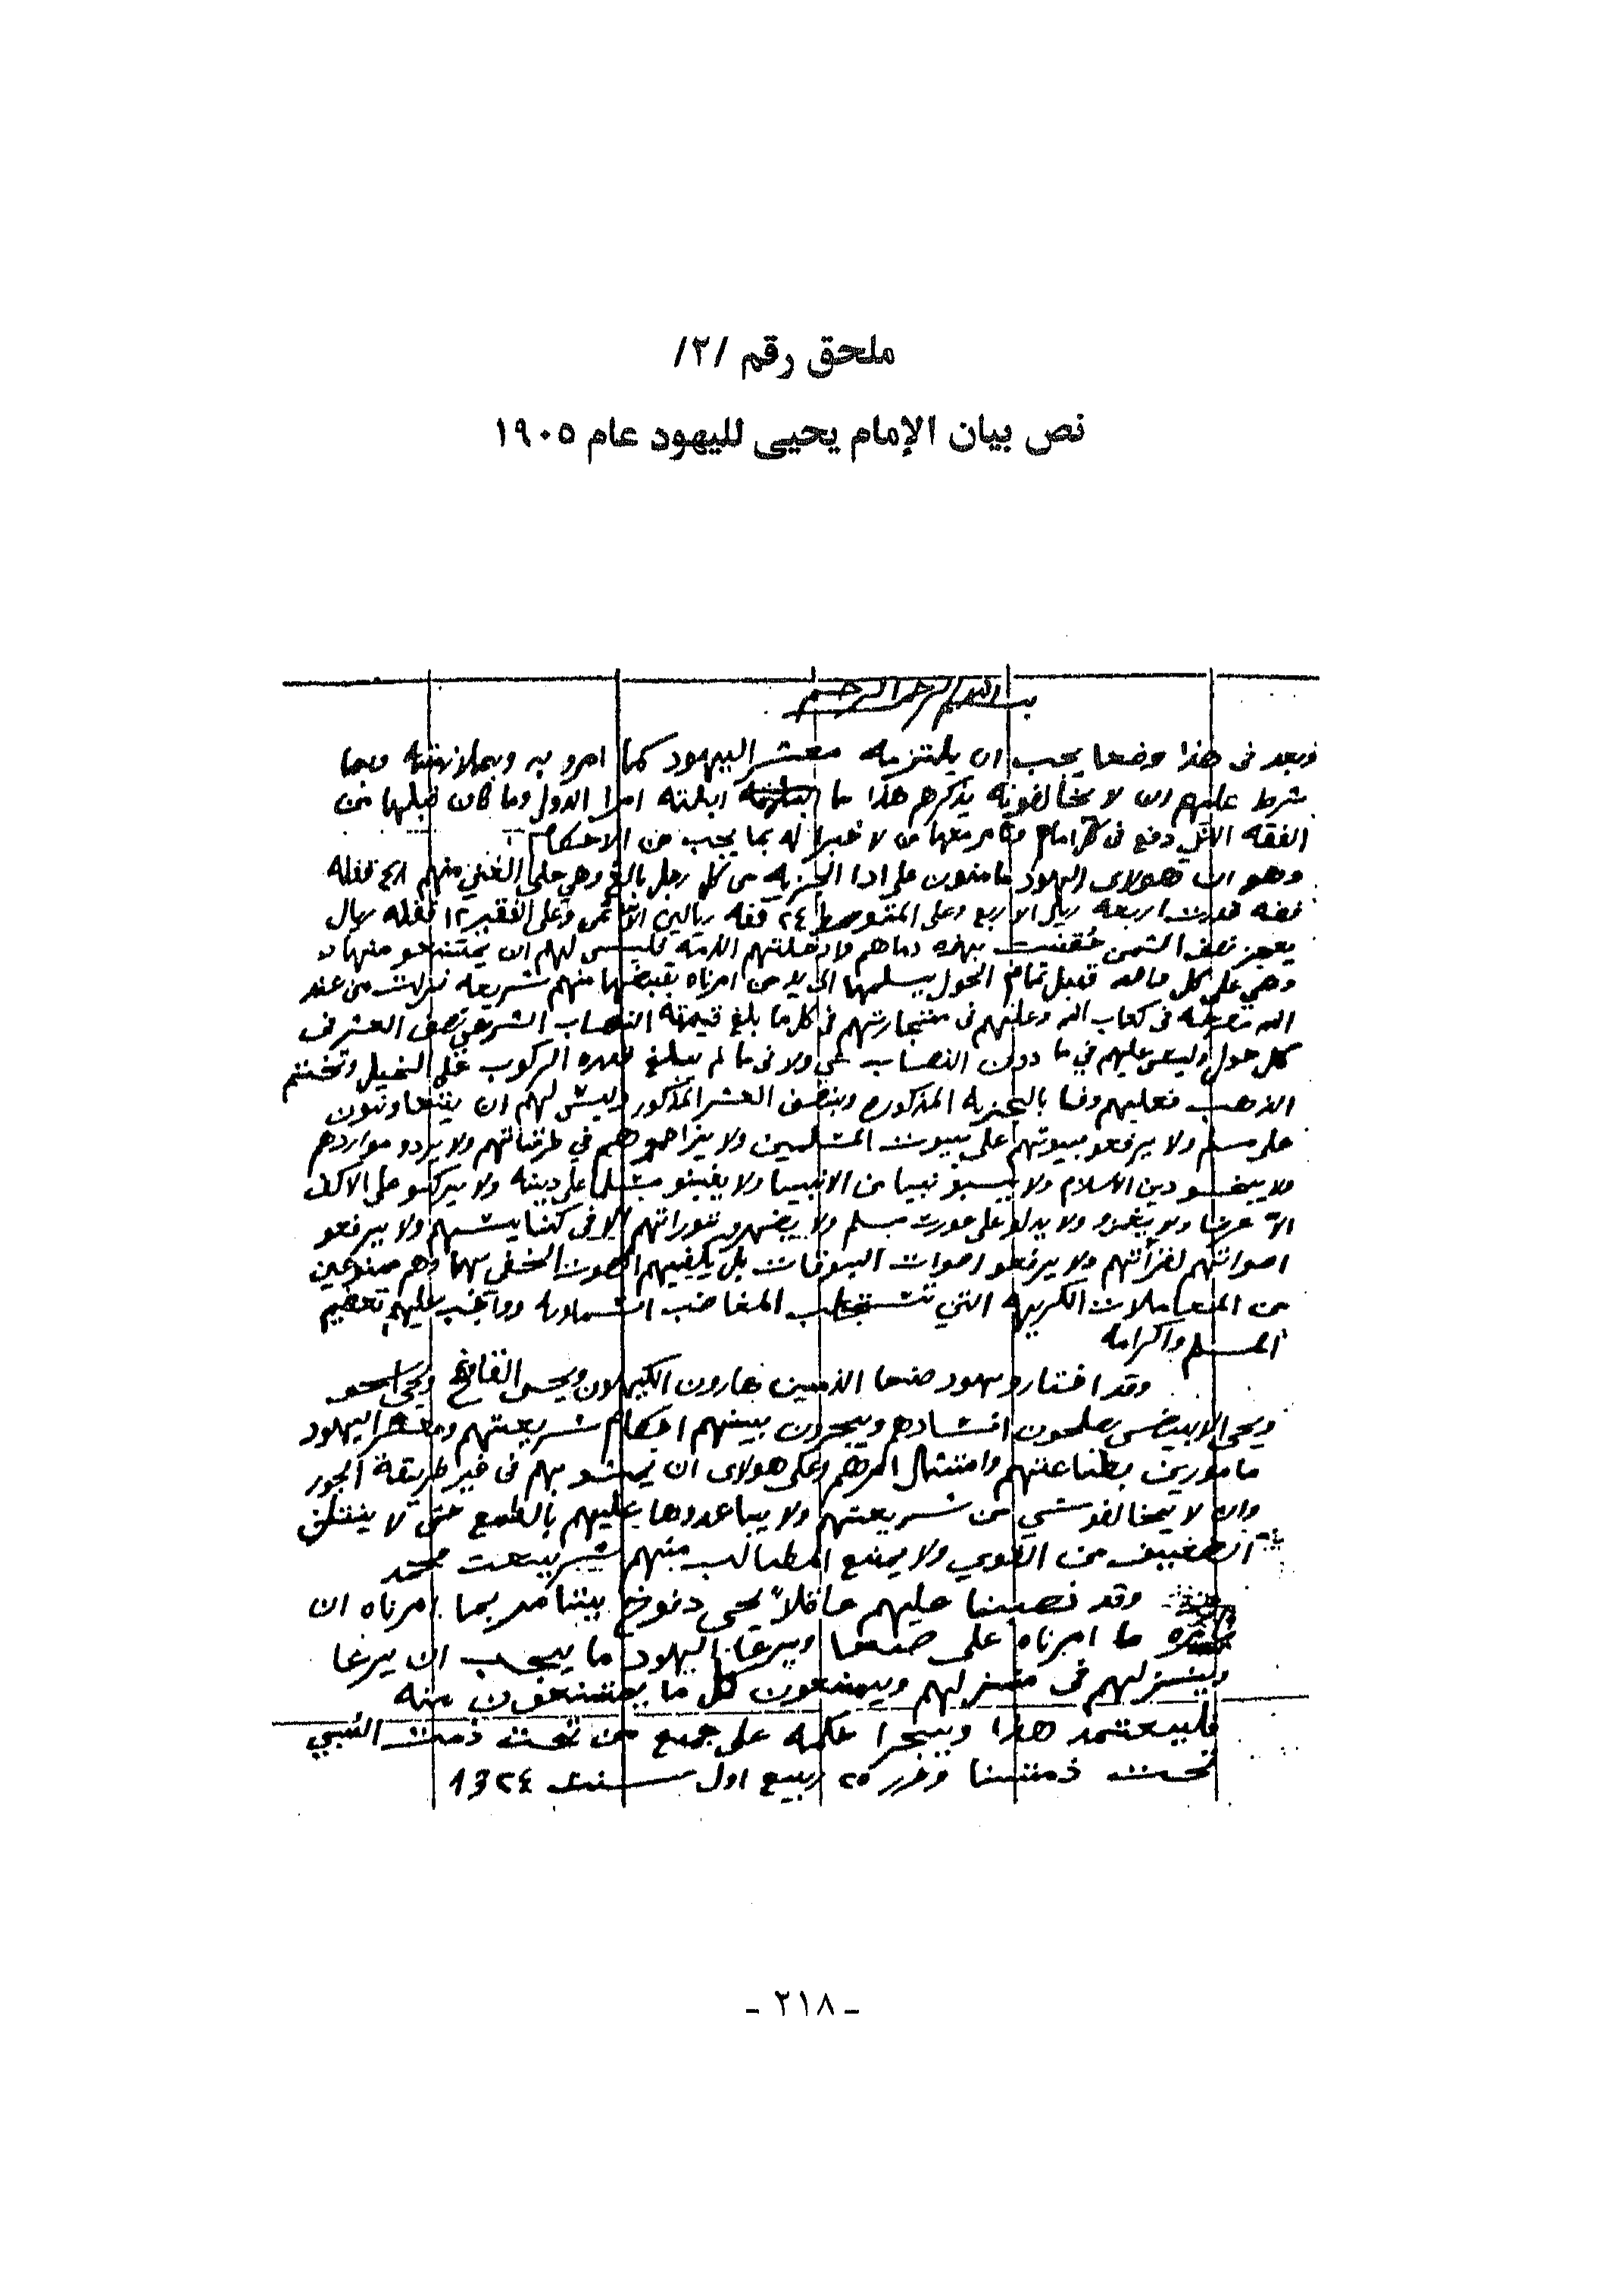 ملحق رقم /٢/
نص بيان الإمام يحيى لليهود عام ١٩٠٥
بسم الله الرحمن الرحيم
وبعد فى هذا وضعنا يجب ان يلتزمه معشر اليهود كما امرو به وبملازمته وبما
شرط عليهم وان لا يخالفونه يذكرهم هذا ما ابلته امرا الدول وما كان قبلها من
الفقه الذي دفع فى من لا خبرا له بما يجب من الاحكام
وهو ان هولاى اليهود مامنون على ادا الجزيه من كل رجل بالغ وهي على الغني منهم ٤٨ قفله
فضه قدرت اربعه ريال الا ربع وعلى المتوسط ٢٤ قفله ريالين الا ثمن وعلى الفقير ١٢ قفله ريال
يعجز نصف الثمن حقنت بهذه دماهم وادخلتهم الذمه فليس لهم ان يمتنعو منها
وهي على كل واحد قبل تمام الحول يسلمها الى يد من امرناه بقبضها منهم شريعه نزلت من عند
الله فى كتاب الله وعليهم فى متجارتهم فى كل ما بلغ قيمته النصاب الشرعي نصف العشر فى
كل حول وليس عليهم في ما دون النصاب شي ولا فى ما لم يبلغ الركوب على الخيل وتختم
الذهب فعليهم وفا بالجزيه المذكوره وبنصف العشر المذكور وليس لهم ان يتعاونون
على مسلم ولا يرفعو بيوتهم على بيوت المسلمين ولا يزاحموهم في طرقاتهم ولا يردو مواردهم
ولا يبخسو دين الاسلام ولا يسبو نبيا من الانبيا ولا يفتنو مسلما على دينه ولا يركبو على الاكف
الا عرضا ولا يدلو على عورت مسلم ولا يضهرو توراتهم الا فى كنايسهم ولا يرفعو
اصواتهم لقرأتهم ولا يرفعو اصوات البوقات بل يكفيهم الصوت الخفي بها وهم ممنوعين
من المعاملات الكريهه التي تستجلب المغاضب السماويه وواجب عليهم تعضيم
المسلم واكرامه
وقد اختارو يهود صنعا الذميين هارون الكهون ويحى القافح ويحى اسحق
ويحى الابيض يصلحون افسادهم ويجرون بينهم احكام شريعتهم ومعشر اليهود
مامورين بطاعتهم وامتثال امرهم وعلى هولاى ان يمشو بهم فى غير طريقة الجور
وان لا يخالفو شي من شريعتهم ولا يباعدوها عليهم بالطمع حتى لا
الضعيف من القوي ولا يمنع المطالب منهم بشريعت محمد
وقد نصبنا عليهم عاقلاً يحى دنوخ بيتامر بما امرناه ان
ما امرناه على صنعا ويرعا اليهود ما يجب ان يرعا
وينزلهم فى منزلهم ويمنعون كل ما يمتنعون منه
فليعتمد هذا ويجرا حكمه على جميع من تحت ذمت النبي
تحت ذمتنا وحرر ٢٥ ربيع اول سنت ١٣٢٤
- ٢١٨ -